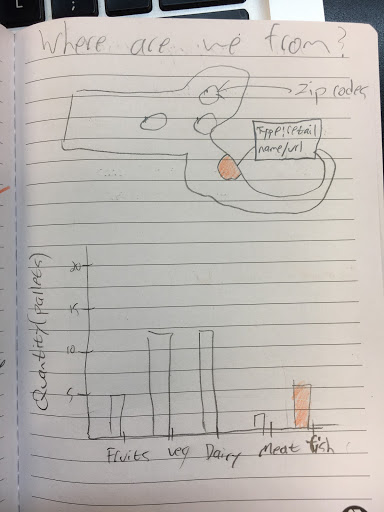 Where are we from?
Zip codes
Type: retail
name/url
Quantity (pallets)
20
15
10
5
Fruits veg Dairy Meat fish